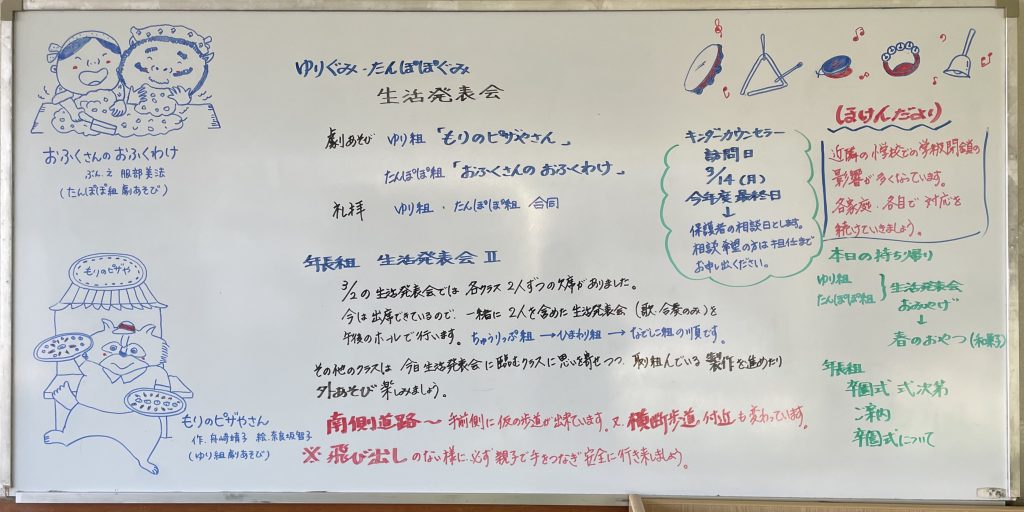 おふくさんのおふくわけ
ぶん.え 服部美法
(たんぽぽ組 劇あそび)
もりのピザや
もりのピザやさん
作.舟崎靖子 絵.奈良坂智子
(ゆり組劇あそび)
ゆりぐみ・たんぽぽぐみ
生活発表会
劇あそび ゆり組 「もりのピザやさん」
たんぽぽ組 「おふくさんのおふくわけ」
礼拝 ゆり組・たんぽぽ組 合同
年長組 生活発表会 Ⅱ
3/2の生活発表会では各クラス2人ずつの欠席がありました。
今は出席できているので、一緒に2人を含めた生活発表会(歌・合奏のみ)を
午後のホールで行います。ちゅうりっぷ組→ひまわり組→なでしこ組の順です。
その他のクラスは今日生活発表会に臨むクラスに思いを寄せつつ、取り組んでいる製作を進めたり
外あそび楽しみましょう。
南側道路〜手前側に仮の歩道が出来ています。又横断歩道付近も変わっています。
※飛び出しのない様に必ず親子で手をつなぎ安全に行き来しましょう。
キンダーカウンセラー
訪問日
3/14(月)
今年度最終日
↓
保護者の相談日とします。
相談希望の方は担任まで
お申し出ください。
(ほけんだより)
近隣の小学校での学級閉鎖の
影響が多くなっています。
各家庭・各自で対応を
続けていきましょう。
本日の持ち帰り
ゆり組
たんぽぽ組
生活発表会
おみやげ
↓
春のおやつ(和菓子)
年長組
卒園式 式次第
ご案内
卒園式について